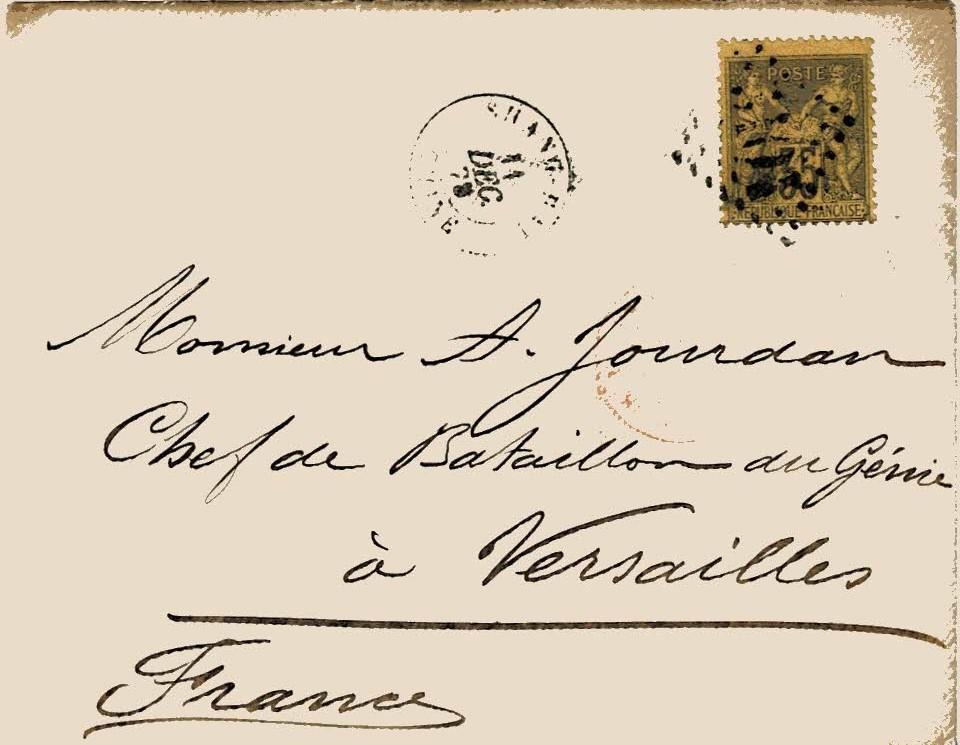 POSTE
35
REPUBLIQUE FRANCAISE
SHANG-HAI
11
DEC.
78
Monsieur A. Jourdan
Chef de Bataillon du Génie
à Versailles
France